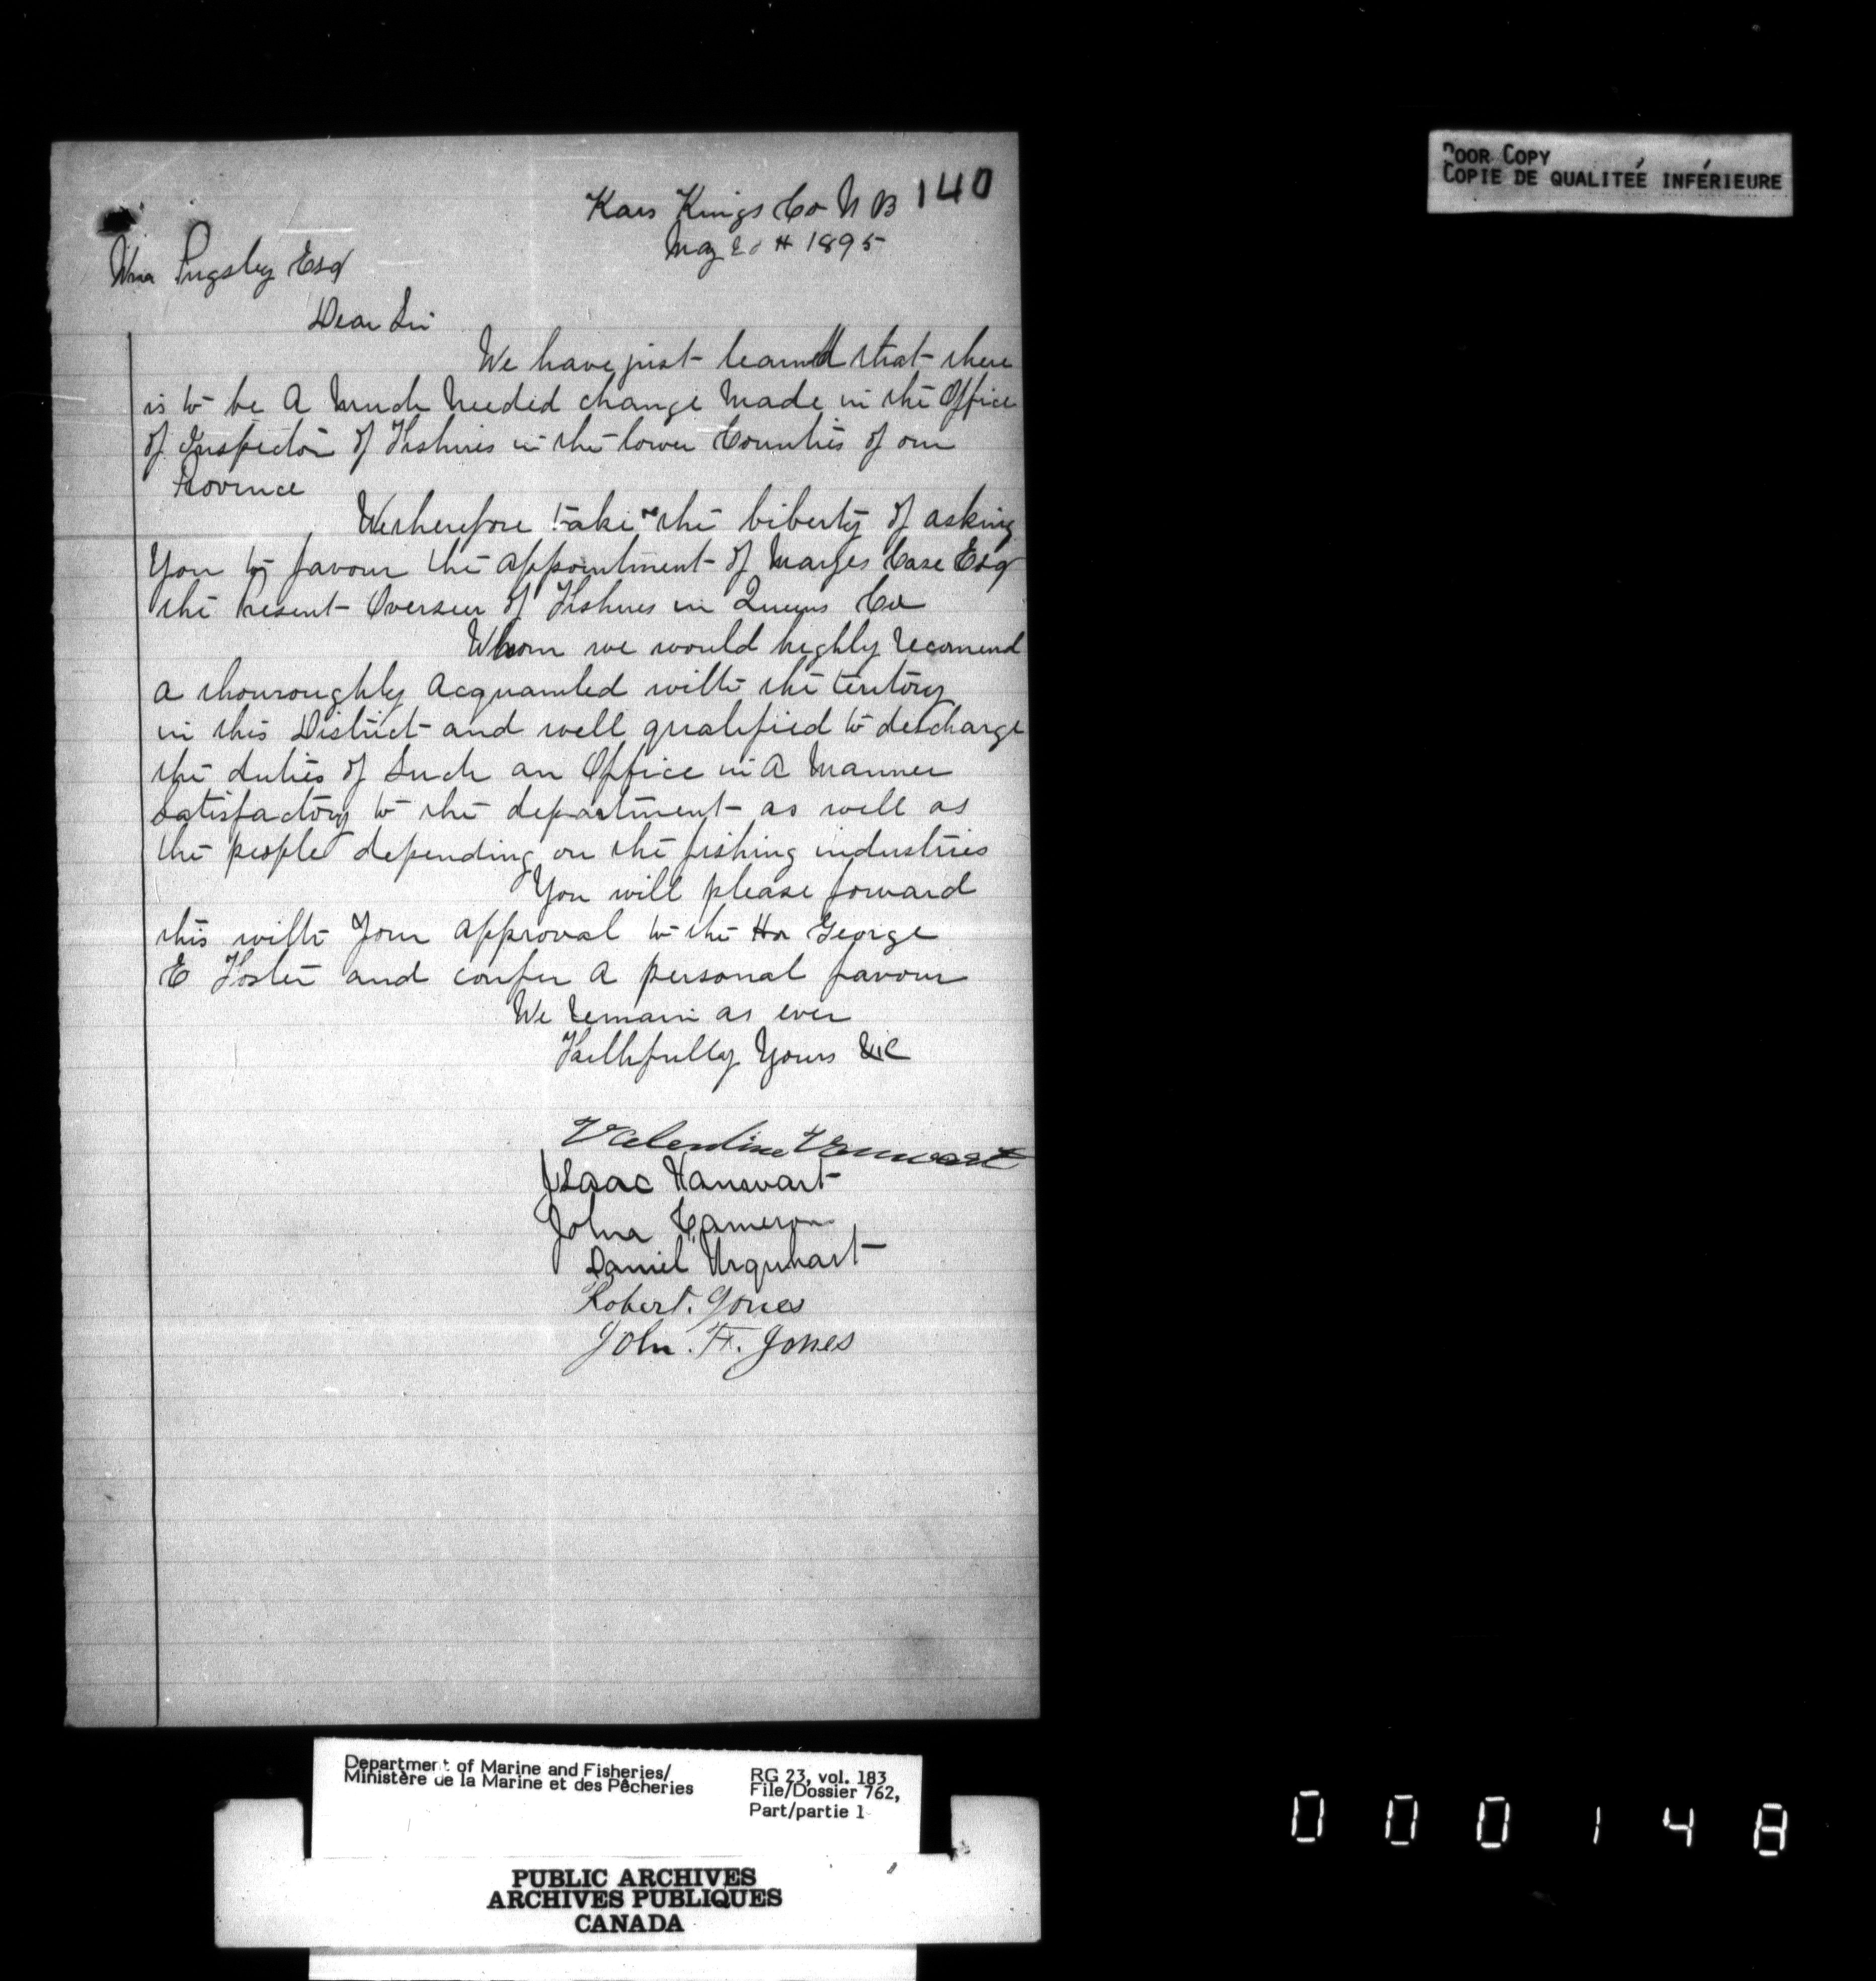 POOR COPY
COPIE DE QUALITEÉ INFÉRIEURE
140
Kars Kings Co N B
May 1895
Wm Pugsley Esq
Dear Sir
We have just learned that there
is to be A Much Needed change Made in the Office
of Inspector of Fisheries in the lower Counties of our
Province
We therefore take the liberty of asking
You to favour the appointment of Case Esq
the Present Overseer of Fisheries in Queens Co
Whom we would highly recomend
a thouroughly Acquainted with the teritory
in this District and well qualified to descharge
the duties of Such an Office in A Manner
Satisfactory to the department as well as
the people depending on the fishing industries
You will please forward
this with Your Approval to the Hon George
E Foster and confer A personal favour
We Remain as ever
Faithfully Yours &c
Valentine Vanwart
Isaac Vanwart
John Cameron
Daniel Urquhart
Robert. Jones
John. F. Jones
Department of Marine and Fisheries/
Ministère de la Marine et des Pêcheries
RG 23, vol. 183
File/Dossier 762,
Part/partie 1
PUBLIC ARCHIVES
ARCHIVES PUBLIQUES
CANADA
000148